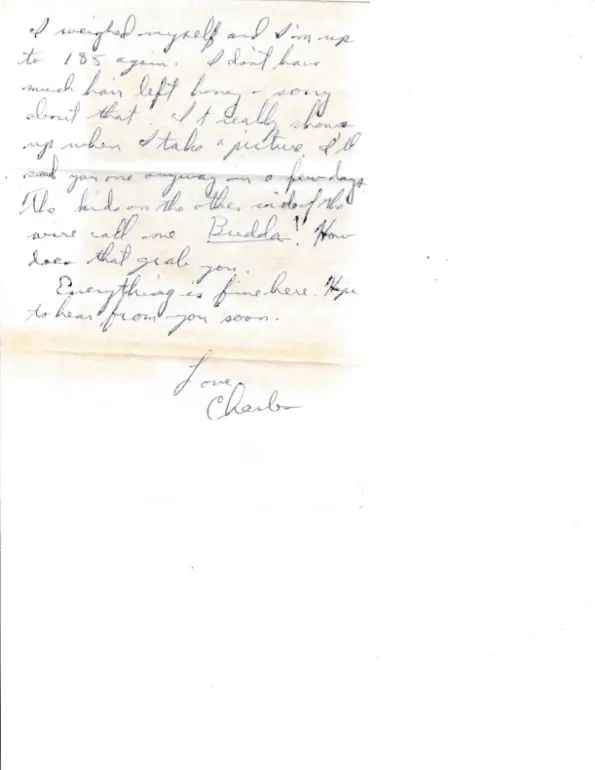 I weighed myself and I'm up
to 185 again. I don't have
much hair left honey - sorry
about that. It really shows
up when I take a picture. I'll
send you one anyway in a few days.
The kids on the other side of the
wire call me Budda! How
does that grab you.
Everything is fine here. Hope
to hear from you soon.
Love,
Charles